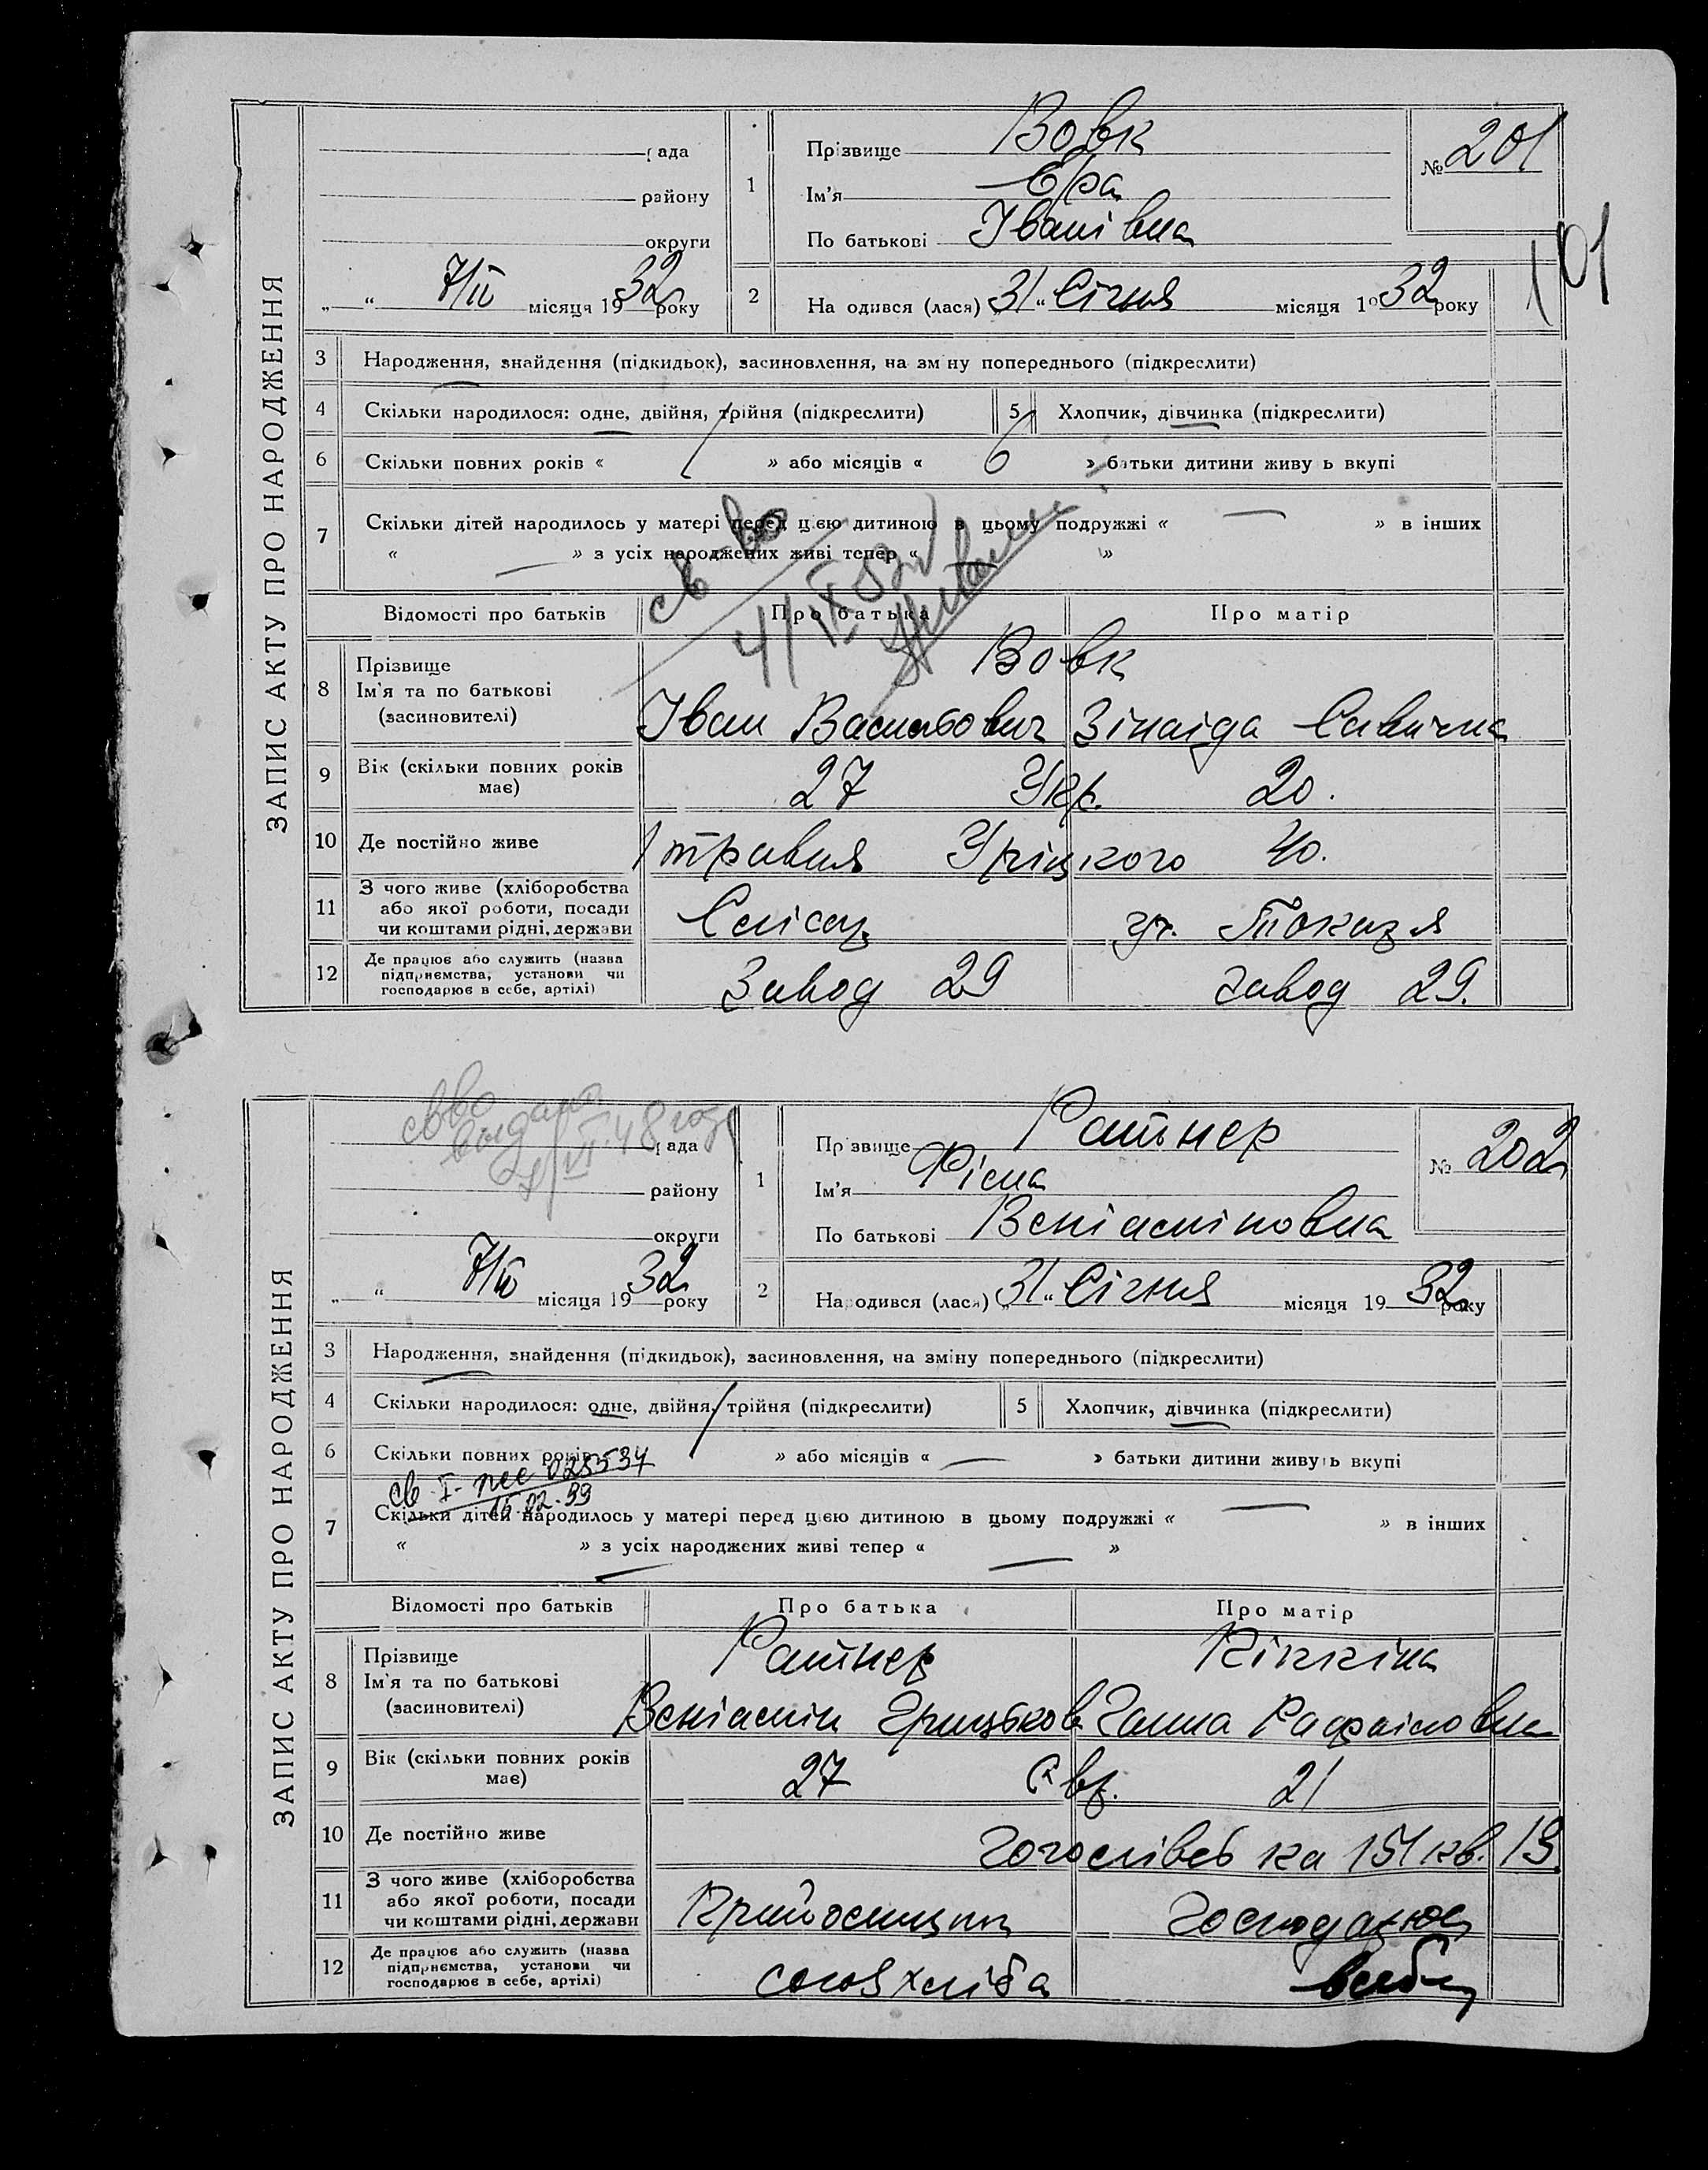 ЗАПИС АКТУ ПРО НАРОДЖЕННЯ
рада
району
округи
„ “ 7/II місяця 1932 року
1
Прізвище Вовк
Ім'я
По батькові Іванівна
№ 201
101
2
На одився (лася) 31 “ Січня місяця 1932 року
3 Народження, знайдення (підкидьок), засиновлення, на зм ну попереднього (підкреслити)
4 Скільки народилося: одне, двійня, трійня (підкреслити)
5 Хлопчик, дівчинка (підкреслити)
6 Скільки повних років « 1 » або місяців « 6 » батьки дитини живу ь вкупі
7 Скільки дітей народилось у матері перед цією дитиною в цьому подружжі « — » в інших
« — » з усіх народжених живі тепер « »
св во
Відомості про батьків Про батька Про матір
8 Прізвище
Ім'я та по батькові
(засиновителі)
Вовк
Іван Васильович Зінаіда Савична
9 Вік (скільки повних років має)
27 Укр. 20.
10 Де постійно живе
1 травня Уріцкого 40.
11 З чого живе (хліборобства
або якої роботи, посади
чи коштами рідні, держави
Слісар уч. Токаря
12 Де працює або служить (назва
підприємства, установи чи
господарює в себе, артілі)
Завод 29 завод 29.
ЗАПИС АКТУ ПРО НАРОДЖЕННЯ
св во
выдано
VI 48 года
рада
району
округи
„ “ 7/II місяця 1932 року
1
Пр звище Ратнер
Ім'я
По батькові Веніаміновна
№ 202
2
Народився (лася) 31 “ Січня місяця 1932 року
3 Народження, знайдення (підкидьок), засиновлення, на зміну попереднього (підкреслити)
4 Скільки народилося: одне, двійня, трійня (підкреслити)
5 Хлопчик, дівчинка (підкреслити)
6 Скільки повних років 1 » або місяців « — » батьки дитини живуть вкупі
св. I- 025537
15.02.99
7 Скільки дітей народилось у матері перед цією дитиною в цьому подружжі « — » в інших
« — » з усіх народжених живі тепер « — »
Відомості про батьків Про батька Про матір
8 Прізвище
Ім'я та по батькові
(засиновителі)
Ратнер
Веніамін Грицьков Ганна Рафаіловна
9 Вік (скільки повних років має)
27 Євр. 21
10 Де постійно живе
151 кв. 19.
11 З чого живе (хліборобства
або якої роботи, посади
чи коштами рідні, держави
Крийосищик Господарює
12 Де працює або служить (назва
підприємства, установи чи
господарює в себе, артілі)
союзхліба в себе